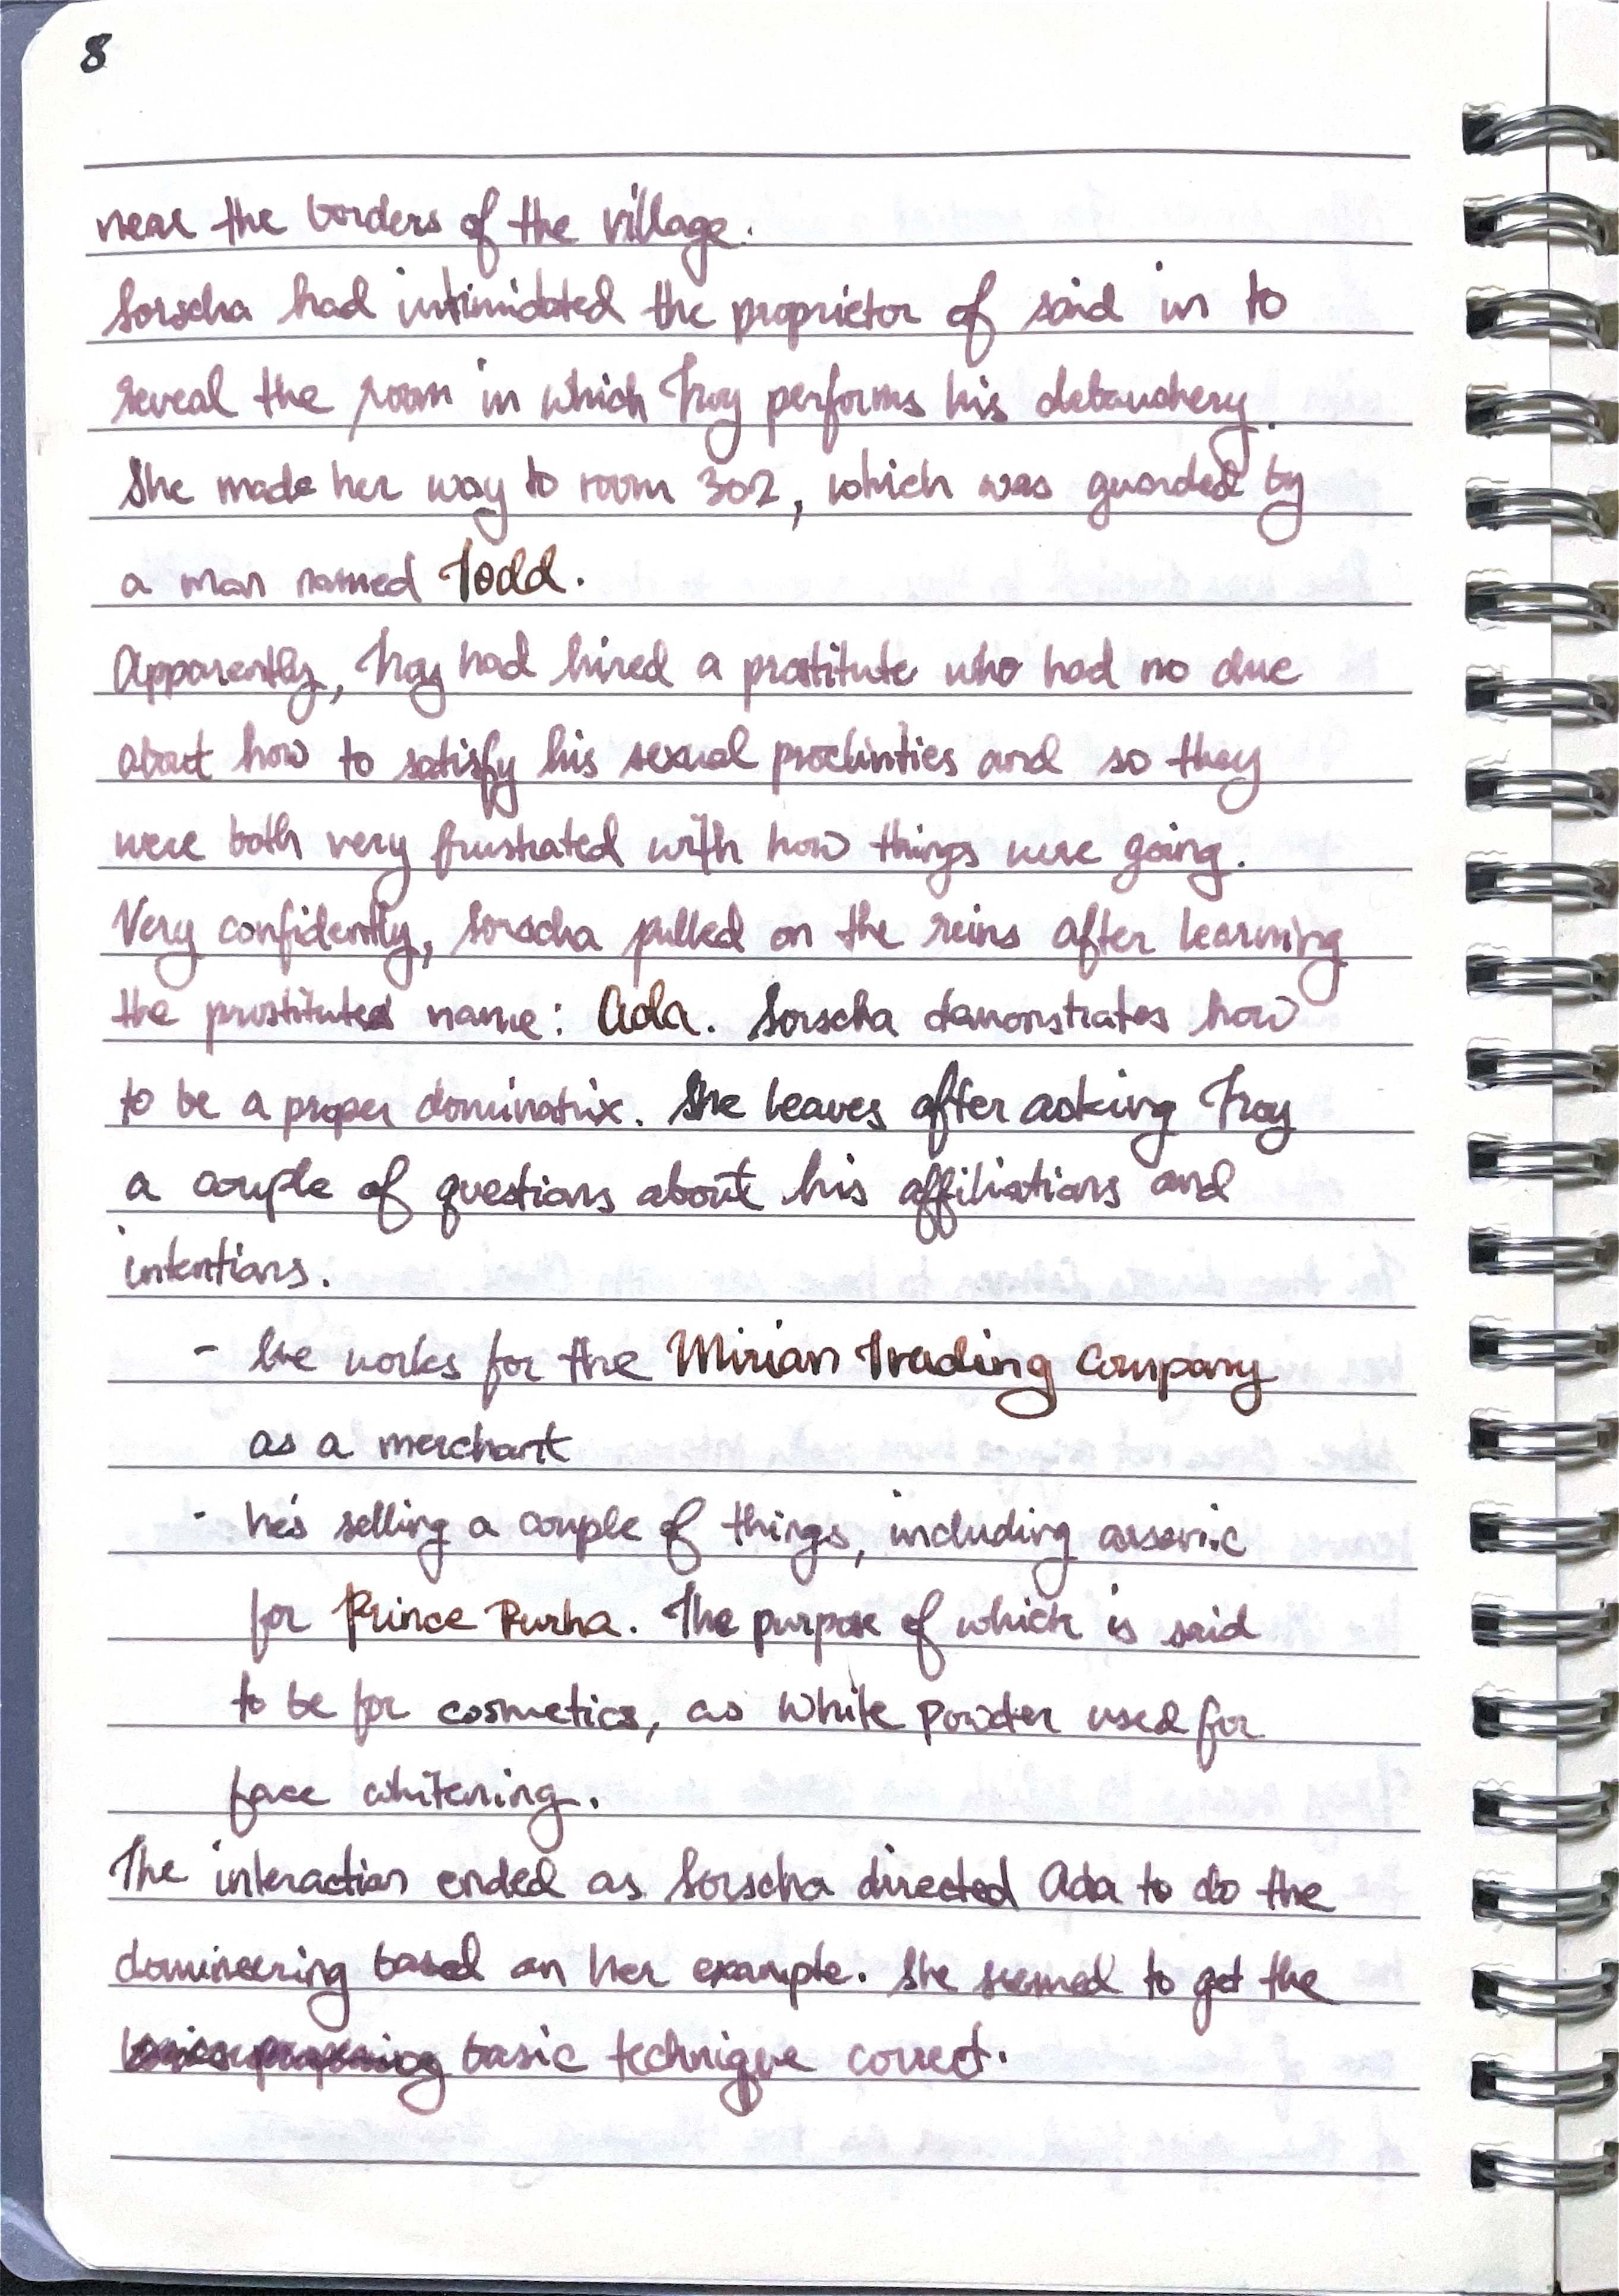 8
near the borders of the village.
Sorscha had intimidated the proprietor of said in to
reveal the room in which Troy performs his debauchery.
She made her way to room 302, which was guarded by
a man named Todd.
Apparently, Troy had hired a prostitute who had no clue
about how to satisfy his sexual proclivities and so they
were both very frustrated with how things were going.
Very confidently, Sorscha pulled on the reins after learning
the prostitutes name: Ada. Sorscha demonstrates how
to be a proper dominatrix. She leaves after asking Troy
a couple of questions about his affiliations and
intentions.
- he works for the Mirian Trading Company
as a merchant
- he's selling a couple of things, including arsenic
for Prince Purha. The purpose of which is said
to be for cosmetics, as white powder used for
face whitening.
The interaction ended as Sorscha directed Ada to do the
domineering based on her example. She seemed to get the
basic technique correct.